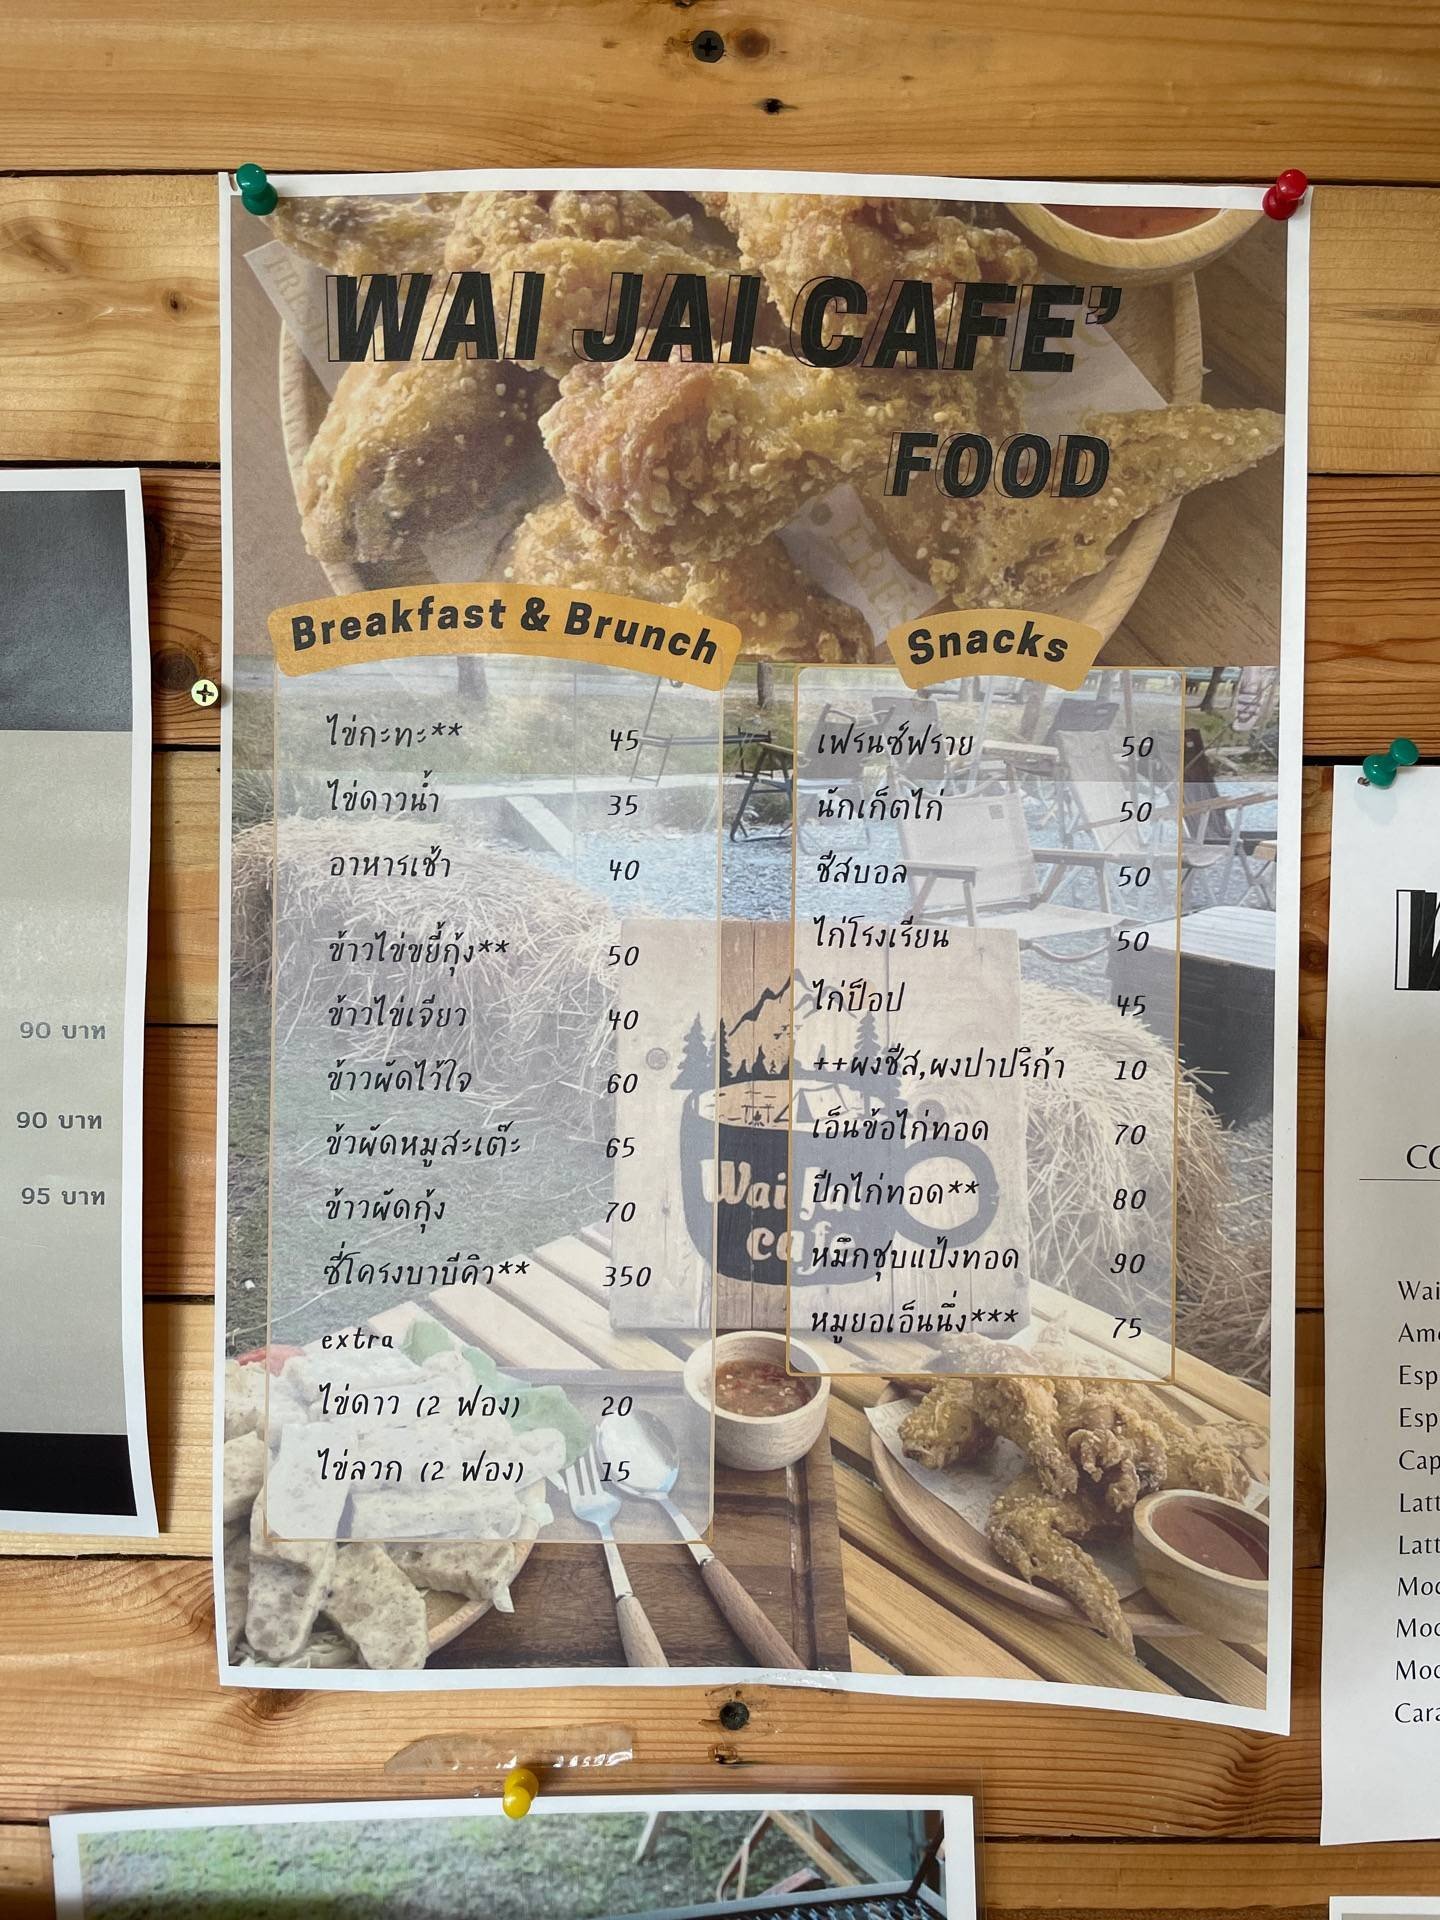 WAI JAI CAFE'
FOOD
Breakfast & Brunch
ไข่กะทะ** 45
ไข่ดาวน้ำ 35
อาหารเช้า 40
ข้าวไข่ขยี้กุ้ง** 50
ข้าวไข่เจียว 40
ข้าวผัดไว้ใจ 60
ข้วผัดหมูสะเต๊ะ 65
ข้าวผัดกุ้ง 70
ซี่โครงบาบีคิว** 350
extra
ไข่ดาว (2 ฟอง) 20
ไข่ลวก (2 ฟอง) 15
Snacks
เฟรนช์ฟราย 50
นักเก็ตไก่ 50
ชีสบอล 50
ไก่โรงเรียน 50
ไก่ป็อป 45
++ผงชีส,ผงปาปริก้า 10
เอ็นข้อไก่ทอด 70
ปีกไก่ทอด** 80
หมึกชุบแป้งทอด 90
หมูยอเอ็นนึ่ง*** 75
Wai Jai
cafe
90 บาท
90 บาท
95 บาท
W
CO
Wai
Ame
Esp
Esp
Cap
Latt
Latt
Moc
Moc
Moc
Cara